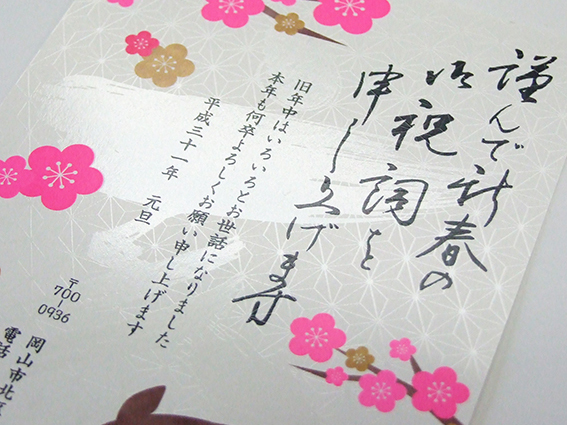 謹んで新春の
御祝詞を
申し上げます
旧年中はいろいろとお世話になりました
本年も何卒よろしくお願い申し上げます
平成三十一年　元旦
〒700-0936
岡山市北区
電話